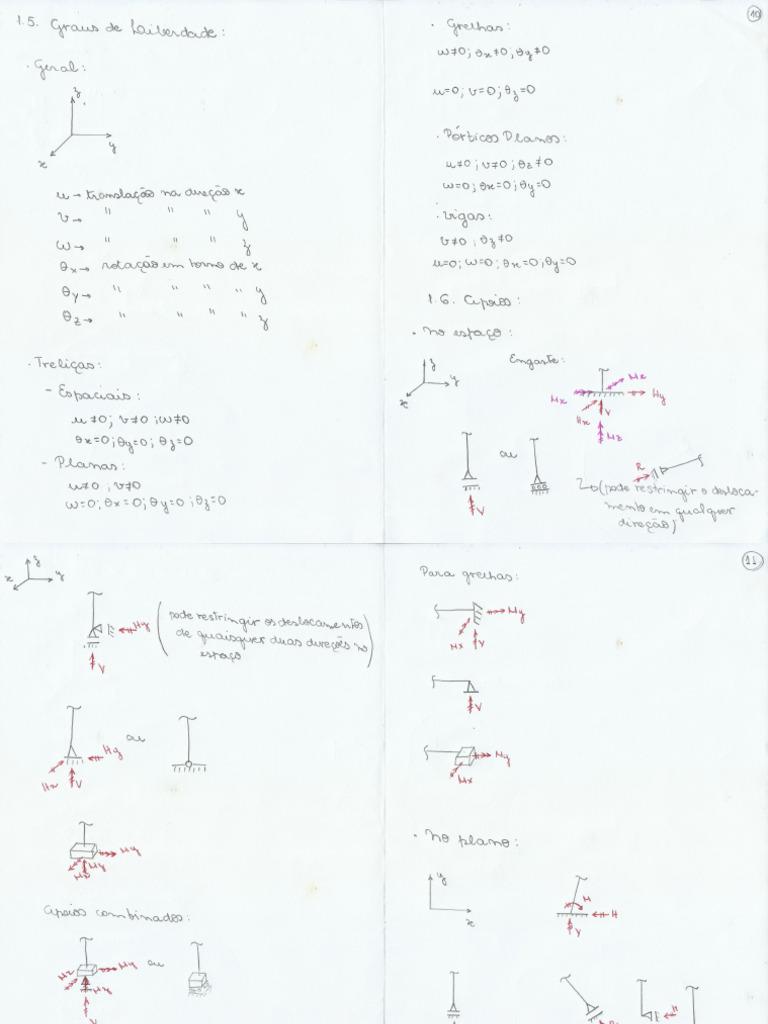 1.5. Graus de Liberdade:
· Geral:
z
y
x
u → translação na direção x
v → " " " y
w → " " " z
θx → rotação em torno de x
θy → " " " " y
θz → " " " " z
· Treliças:
- Espaciais:
u≠0; v≠0; w≠0
θx=0; θy=0; θz=0
- Planas:
u≠0; v≠0
w=0; θx=0; θy=0; θz=0
10
· Grelhas:
w≠0; θx≠0; θy≠0
u=0; v=0; θz=0
· Pórticos Planos:
u≠0; v≠0; θz≠0
w=0; θx=0; θy=0
· Vigas:
v≠0; θz≠0
u=0; w=0; θx=0; θy=0
1.6. Apoios:
· No espaço:
z
y
x
Engaste:
Mx
Hy
Hx
V
Mz
ou
V
R
(pode restringir o desloca-
mento em qualquer
direção)
z
x
y
Hy
V
(pode restringir os deslocamentos
de quaisquer duas direções no
espaço)
Hy
Hx
V
ou
My
Hy
Apoios combinados:
Mz
My
ou
V
11
Para grelhas:
My
Mx
V
V
My
Mx
· No plano:
y
x
M
H
V
H